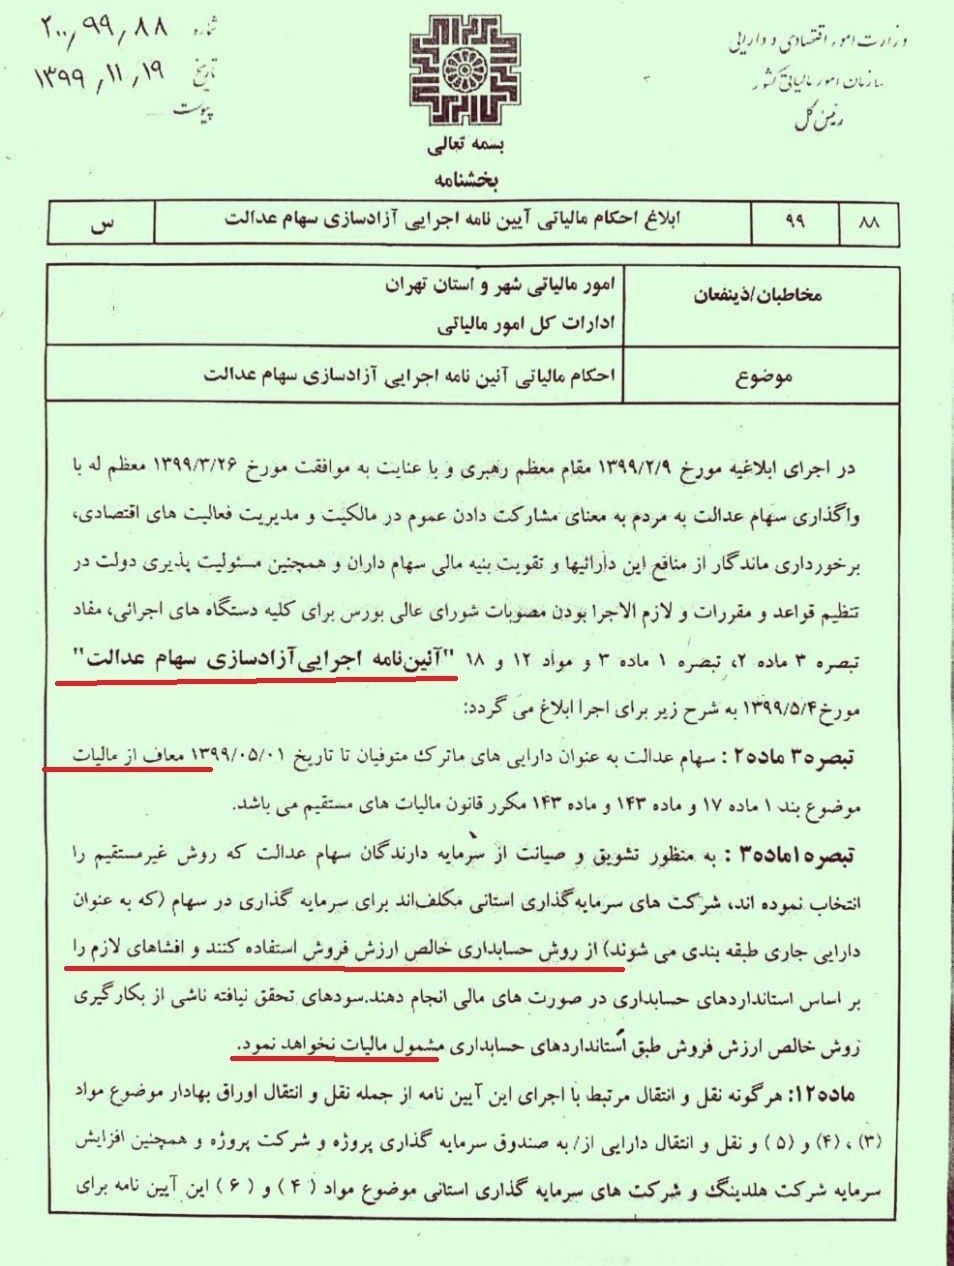 وزارت امور اقتصادی و دارایی
سازمان امور مالیاتی کشور
رئیس کل
شماره ۲۰۰,۹۹,۸۸
تاریخ ۱۳۹۹,۱۱,۱۹
پیوست
بسمه تعالی
بخشنامه
۸۸ ۹۹ ابلاغ احکام مالیاتی آیین نامه اجرایی آزادسازی سهام عدالت س
مخاطبان/ذینفعان امور مالیاتی شهر و استان تهران
ادارات کل امور مالیاتی
موضوع احکام مالیاتی آئین نامه اجرایی آزادسازی سهام عدالت
در اجرای ابلاغیه مورخ ۱۳۹۹/۲/۹ مقام معظم رهبری و با عنایت به موافقت مورخ ۱۳۹۹/۳/۲۶ معظم له با
واگذاری سهام عدالت به مردم به معنای مشارکت دادن عموم در مالکیت و مدیریت فعالیت های اقتصادی،
برخورداری ماندگار از منافع این دارائیها و تقویت بنیه مالی سهام داران و همچنین مسئولیت پذیری دولت در
تنظیم قواعد و مقررات و لازم الاجرا بودن مصوبات شورای عالی بورس برای کلیه دستگاه های اجرائی، مفاد
تبصره ۳ ماده ۲، تبصره ۱ ماده ۳ و مواد ۱۲ و ۱۸ "آئین‌نامه اجرایی‌آزادسازی سهام عدالت"
مورخ۱۳۹۹/۵/۴ به شرح زیر برای اجرا ابلاغ می گردد:
تبصره۳ ماده۲ : سهام عدالت به عنوان دارایی های ماترک متوفیان تا تاریخ ۱۳۹۹/۰۵/۰۱ معاف از مالیات
موضوع بند ۱ ماده ۱۷ و ماده ۱۴۳ و ماده ۱۴۳ مکرر قانون مالیات های مستقیم می باشد.
تبصره۱ماده۳ : به منظور تشویق و صیانت از سرمایه دارندگان سهام عدالت که روش غیرمستقیم را
انتخاب نموده اند، شرکت های سرمایه‌گذاری استانی مکلف‌اند برای سرمایه گذاری در سهام (که به عنوان
دارایی جاری طبقه بندی می شوند) از روش حسابداری خالص ارزش فروش استفاده کنند و افشاهای لازم را
بر اساس استانداردهای حسابداری در صورت های مالی انجام دهند.سودهای تحقق نیافته ناشی از بکارگیری
روش خالص ارزش فروش طبق استانداردهای حسابداری مشمول مالیات نخواهد نمود.
ماده۱۲: هرگونه نقل و انتقال مرتبط با اجرای این آیین نامه از جمله نقل و انتقال اوراق بهادار موضوع مواد
(۳) ، (۴) و (۵) و نقل و انتقال دارایی از/ به صندوق سرمایه گذاری پروژه و شرکت پروژه و همچنین افزایش
سرمایه شرکت هلدینگ و شرکت های سرمایه گذاری استانی موضوع مواد (۴) و (۶) این آیین نامه برای